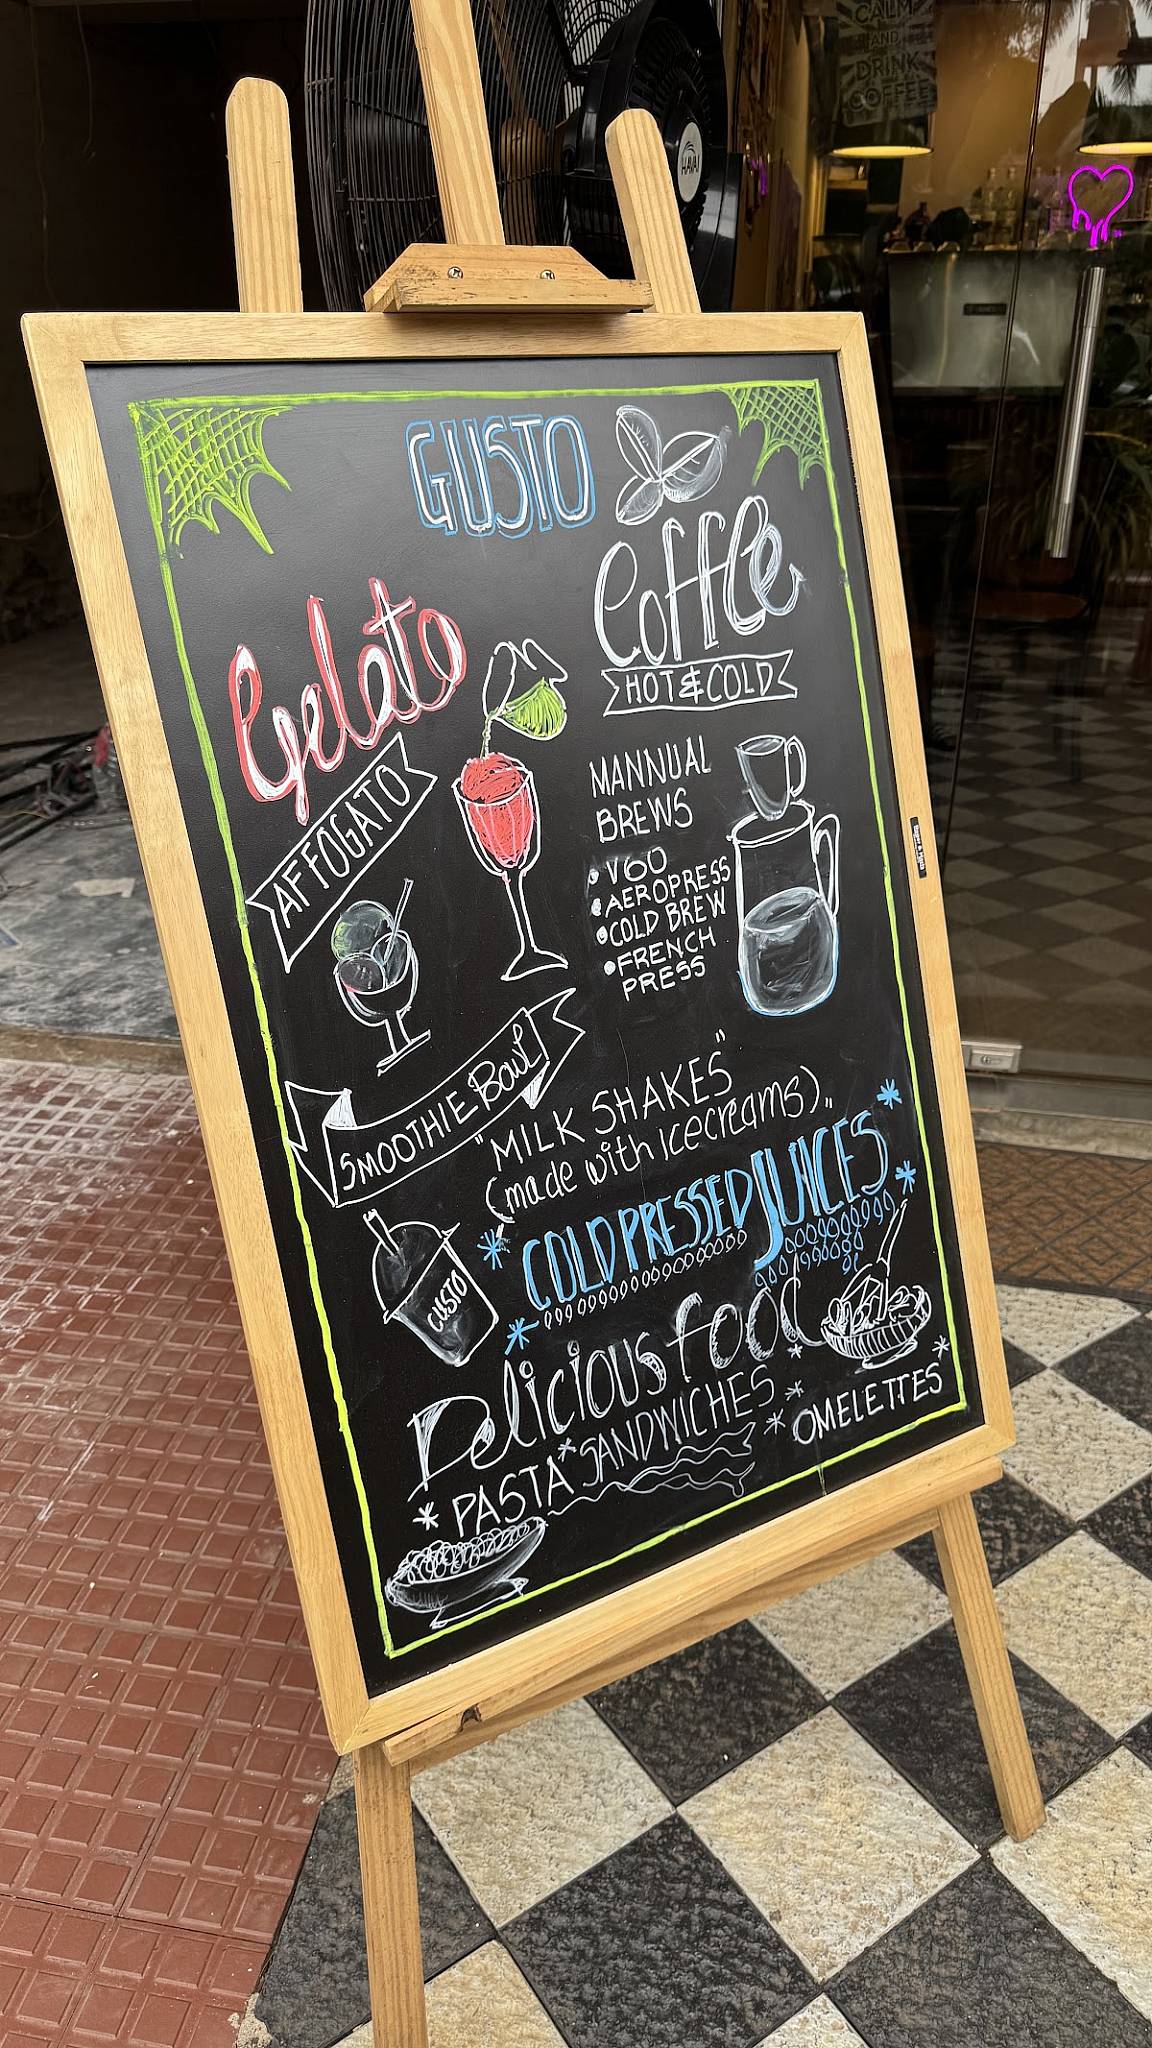 CALM
AND
DRINK
COFFEE
HAVAI
GUSTO
Coffee
HOT & COLD
Gelato
AFFOGATO
MANNUAL
BREWS
• V60
• AEROPRESS
• COLD BREW
• FRENCH
PRESS
SMOOTHIE BOWL
"MILK SHAKES"
(made with icecreams)"
* COLD PRESSED JUICES *
GUSTO
Delicious food
* PASTA * SANDWICHES * OMELETTES *